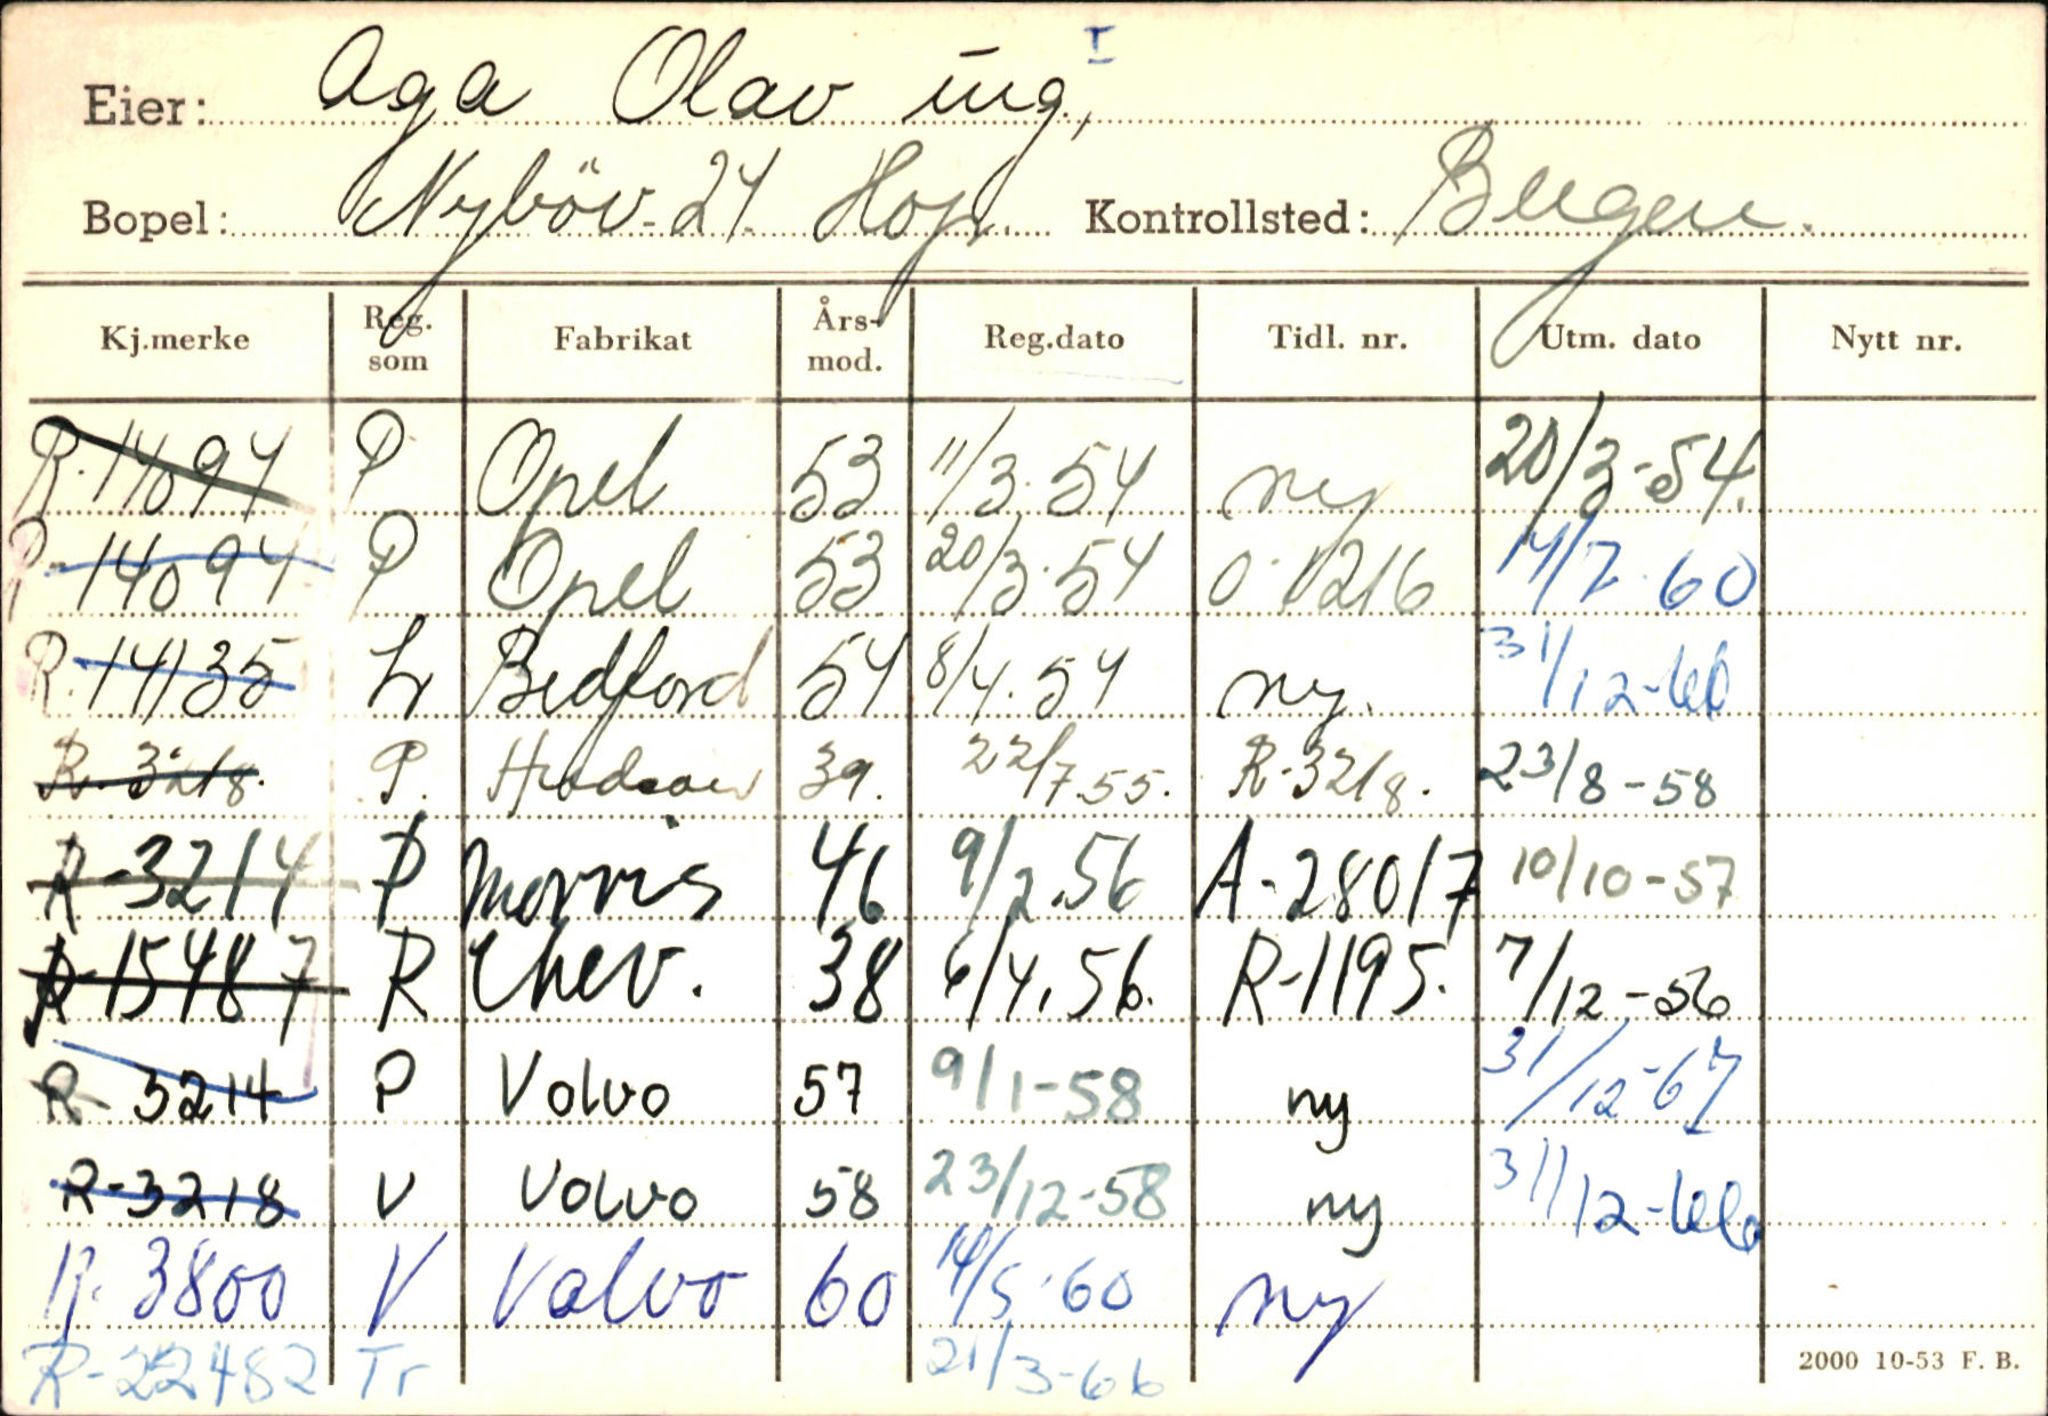 I
Eier: Aga Olav ing,
Bopel: Nyböv. 24. Hop. Kontrollsted: Bergen.
Kj.merke Reg. som Fabrikat Års-mod. Reg.dato Tidl. nr. Utm. dato Nytt nr.
R.14094 P Opel 53 11/3.54 ny 20/3-54.
R-14094 P Opel 53 20/3.54 O-1216 14/7.60
R.14135 L Bedford 54 8/4.54 ny. 31/12-66
R-3218. P. Hudson 39. 22/7.55. R-3218. 23/8-58
R-3214 P Morris 46 9/2.56 A-28017 10/10-57
R-15487 R Chev. 38 6/4.56. R-1195. 7/12-56
R-3214 P Volvo 57 9/1-58 ny 31/12-67
R-3218 V Volvo 58 23/12-58 ny 31/12-66
R-3800 V Volvo 60 14/5.60 ny
R-22482 Tr 21/3-66
2000 10-53 F. B.